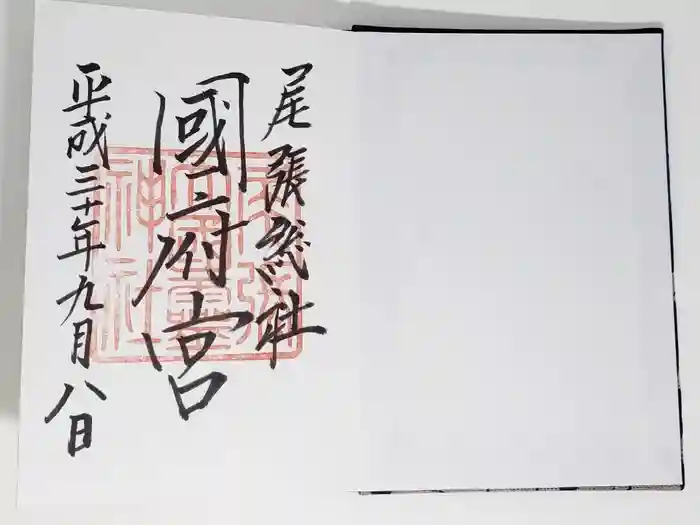 尾張総社
國府宮
平成三十年九月八日